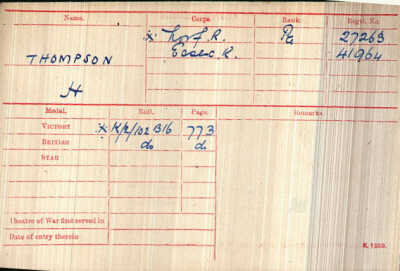 Name. Corps. Rank. Regtl. No.
x Norf. R. Pte 27263
THOMPSON Essex R. 41964
H
Medal. Roll. Page. Remarks.
VICTORY x K/2/102 B16 773
BRITISH do do
STAR
Theatre of War first served in
Date of entry therein
K. 1380.